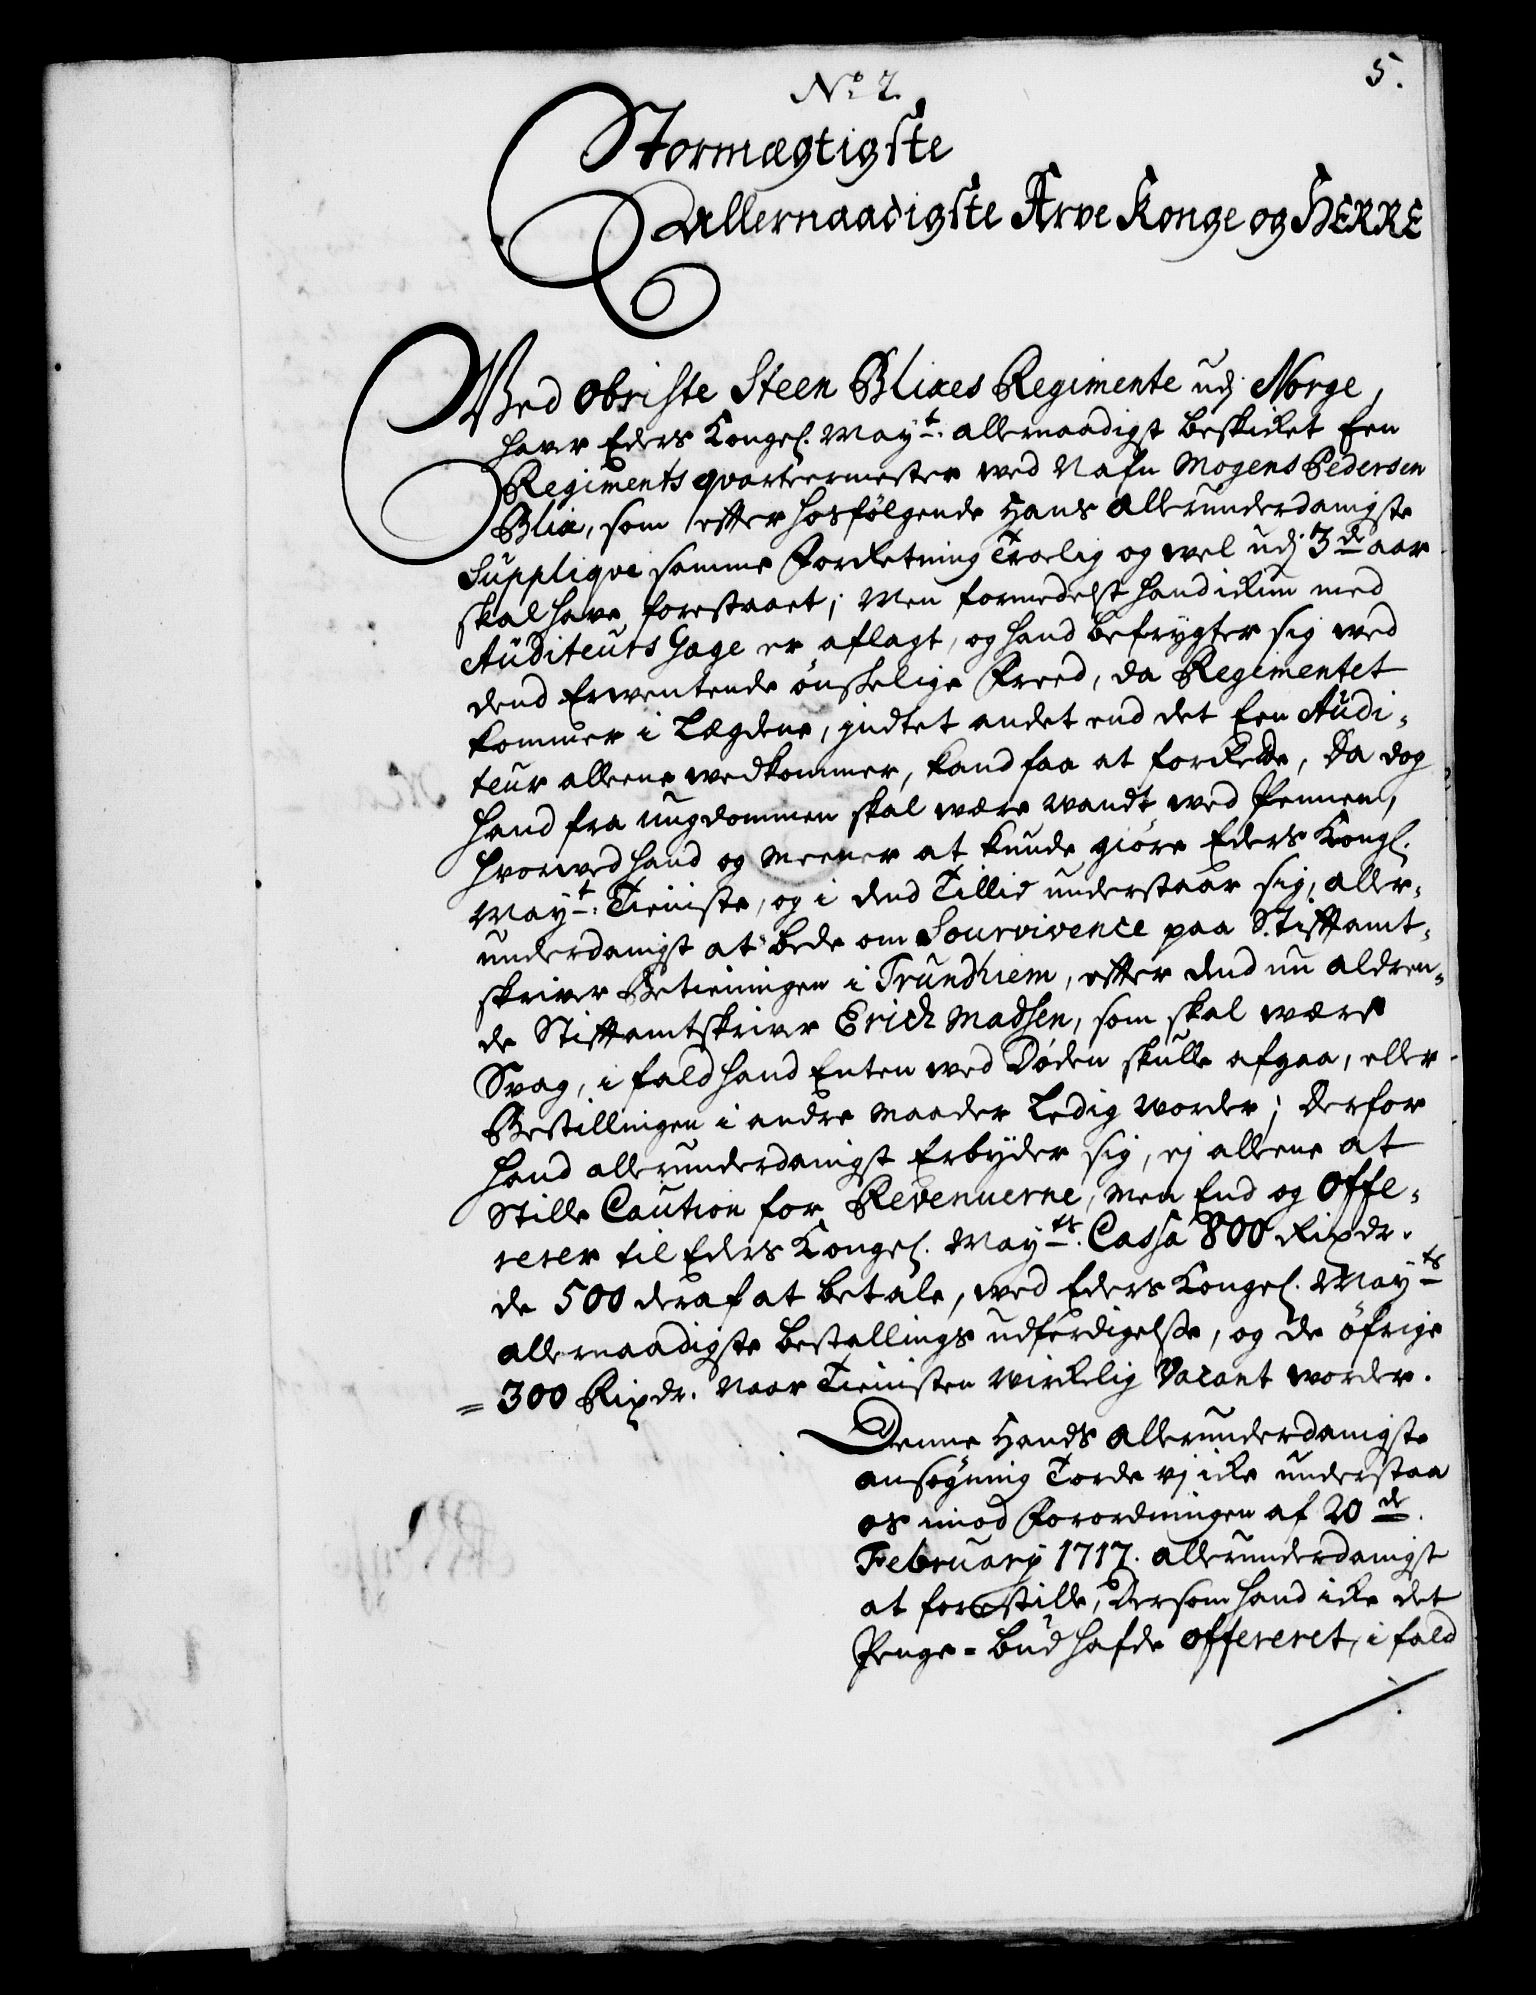 5.
No 2.
Stormægtigste
Allernaadigste Arve Konge og HERRE
Wed Obriste Steen Blixes Regimente udj Norge,
hafver Eders Kongel. Mayt: allernaadigst beskicket Een
Regiments qvarteermester wed Nafn Mogens Pedersen
Blix, som effter hosfölgende Hans allerunderdanigste
Supplique samme Forretning Troelig og wel udj 3de aar
skal have forestaaet; Men formedelst hand icke nu med
Auditeurs Gage er aflagt, og hand befrygter sig wed
dend Erwentende önskelige Freed, da Regimentet
kommer i Lægdene, jndtet andet end det Een Audi-
teur alleene wedkommer, kand faa at forrette, Da dog
hand fra ungdommen skal være vandt wed Pennen,
hvorved hand og Meener at kunde giöre Eders Kongl.
Mayt: Tieniste, og i dend Tillid understaar sig, aller-
underdanigst at bede om Sourvivence paa Stiftamt-
skriver Betieningen i Trundhiem, effter dend nu aldren-
de Stiftamtskriver Erich Madsen, som skal være
Svag, i fald hand Enten wed Döden skulle afgaa, eller
Bestillingen i andre Maader Ledig worder; Derfor
hand allerunderdanigst Erbyder sig, ej alleene at
Stille Caution for Revenuerne, Men End og Offe-
rerer til Eders Kongel. Mayts: Cassa 800 Rixdr.
de 500 deraf at betale, wed Eders Kongel. Mayts
allernaadigste bestallings udferdigelse, og de öfrige
= 300 Rixdr. Naar Tienisten Wirkelig Vacant worder.
Denne Hands allerunderdanigste
ansögning Torde vj icke understaa
os imod Forordningen af 20de.
Februarij 1717. allerunderdanigst
at forestille, Dersom hand icke det
Penge-bud hafde offereret, i fald